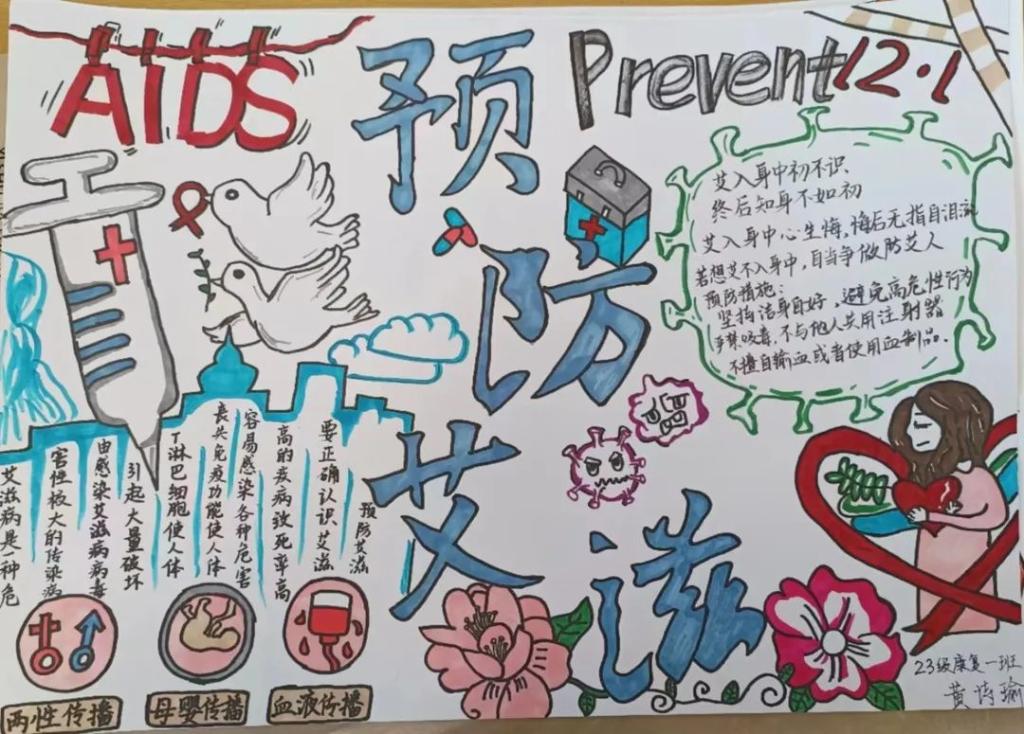 AIDS
预防艾滋
Prevent 12·1
艾入身中初不识
终后知身不如初
艾入身中心生悔,悔后无指自泪流
若想艾不入身中,自当争做防艾人
预防措施:
坚持洁身自好,避免高危性行为
严禁吸毒,不与他人共用注射器
不擅自输血或者使用血制品.
艾滋病是一种危
害性极大的传染病
由感染艾滋病病毒
引起大量破坏
T淋巴细胞使人体
丧失免疫功能使人体
容易感染各种危害
高的疾病致死率高
要正确认识艾滋
预防艾滋
两性传播
母婴传播
血液传播
23级康复一班
黄诗瑜